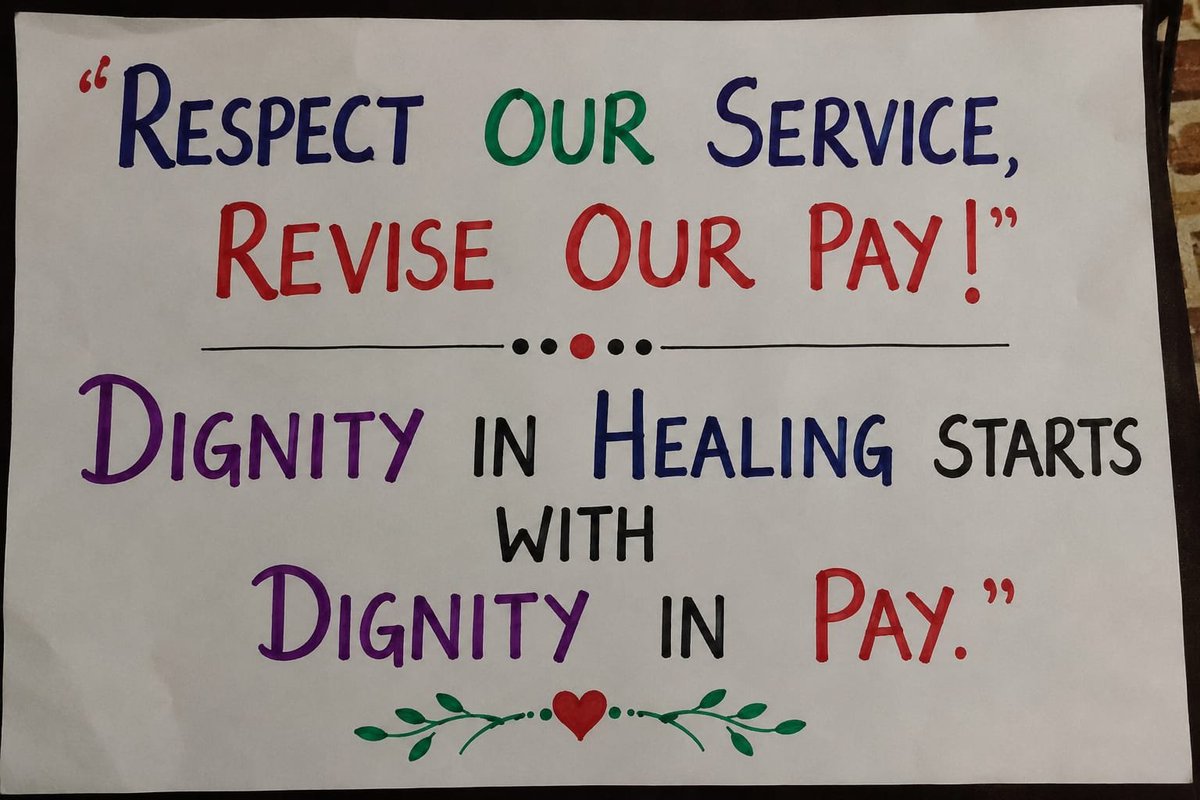 “RESPECT OUR SERVICE,
REVISE OUR PAY!”
DIGNITY IN HEALING STARTS
WITH
DIGNITY IN PAY.”